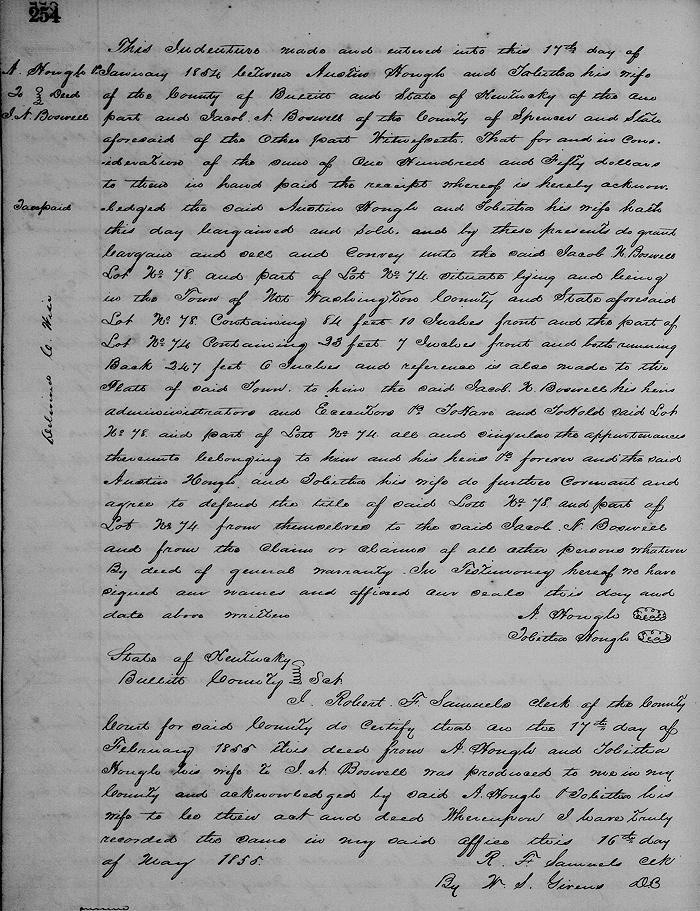 254
This Indenture made and entered into this 17th day of
January 1854 between Austin Hough and Tobitha his wife
of the County of Bullitt and State of Kentucky of the one
part and Jacob. N. Boswell of the County of Spencer and State
aforesaid of the Other part Witnesseth. That for and in Cons-
ideration of the sum of One Hundred and Fifty dollars
to them in hand paid the receipt whereof is hereby acknow-
ledged the said Austin Hough and Tobitha his wife hath
this day bargained and sold. and by these presents do grant
bargain and sell and Convey unto the said Jacob N. Boswell
Lot No 78 and part of Lot No 74 situate lying and being
in the Town of Mt Washington County and State aforesaid
Lot No 78 Containing 84 feet 10 Inches front and the part of
Lot No 74 Containing 23 feet 7 Inches front and both running
Back 247 feet 6 Inches and reference is also made to the
Platt of said Town. to him the said Jacob. N. Boswell his heirs
administrators and Executors To Have and To Hold said Lot
No 78. and part of Lott No 74. all and singular the appurtenances
thereunto belonging to him and his heirs forever and the said
Austin Hough and Tobitha his wife do further Covenant and
agree to defend the title of said Lott No 78 and part of
Lot No 74 from themselves to the said Jacob. N. Boswell
and from the Claim or claims of all other persons whatever
By deed of general warranty. In Testimoney hereof we have
signed our names and affixed our seals this day and
date above written
A. Hough Seal
Tobitha Hough Seal
A. Hough
To Deed
J. N. Boswell
Tax paid
State of Kentucky
Bullitt County Sct
I. Robert. F. Samuels Clerk of the County
Court for said County do Certify that on the 17th day of
February 1855 this deed from A. Hough and Tobitha
Hough his wife to J. N Boswell was produced to me in my
County and acknowledged by said A. Hough & Tobitha his
wife to be their act and deed Whereupon I have truly
recorded the same in my said office this 16th day
of May 1855.
R. F. Samuels Clk
By W. S. Givens DC